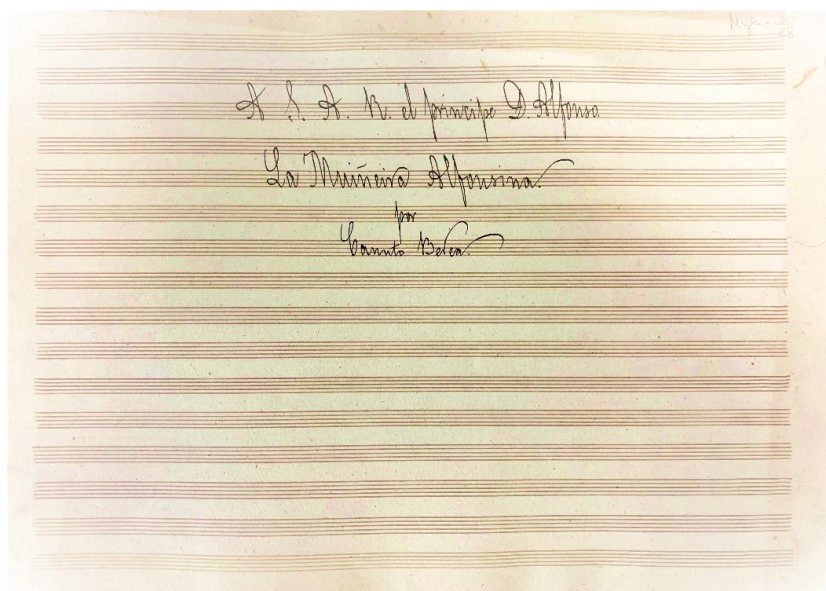 A S. A. R. el príncipe D. Alfonso
La Muiñeira Alfonsina.
por
Canuto Berea.